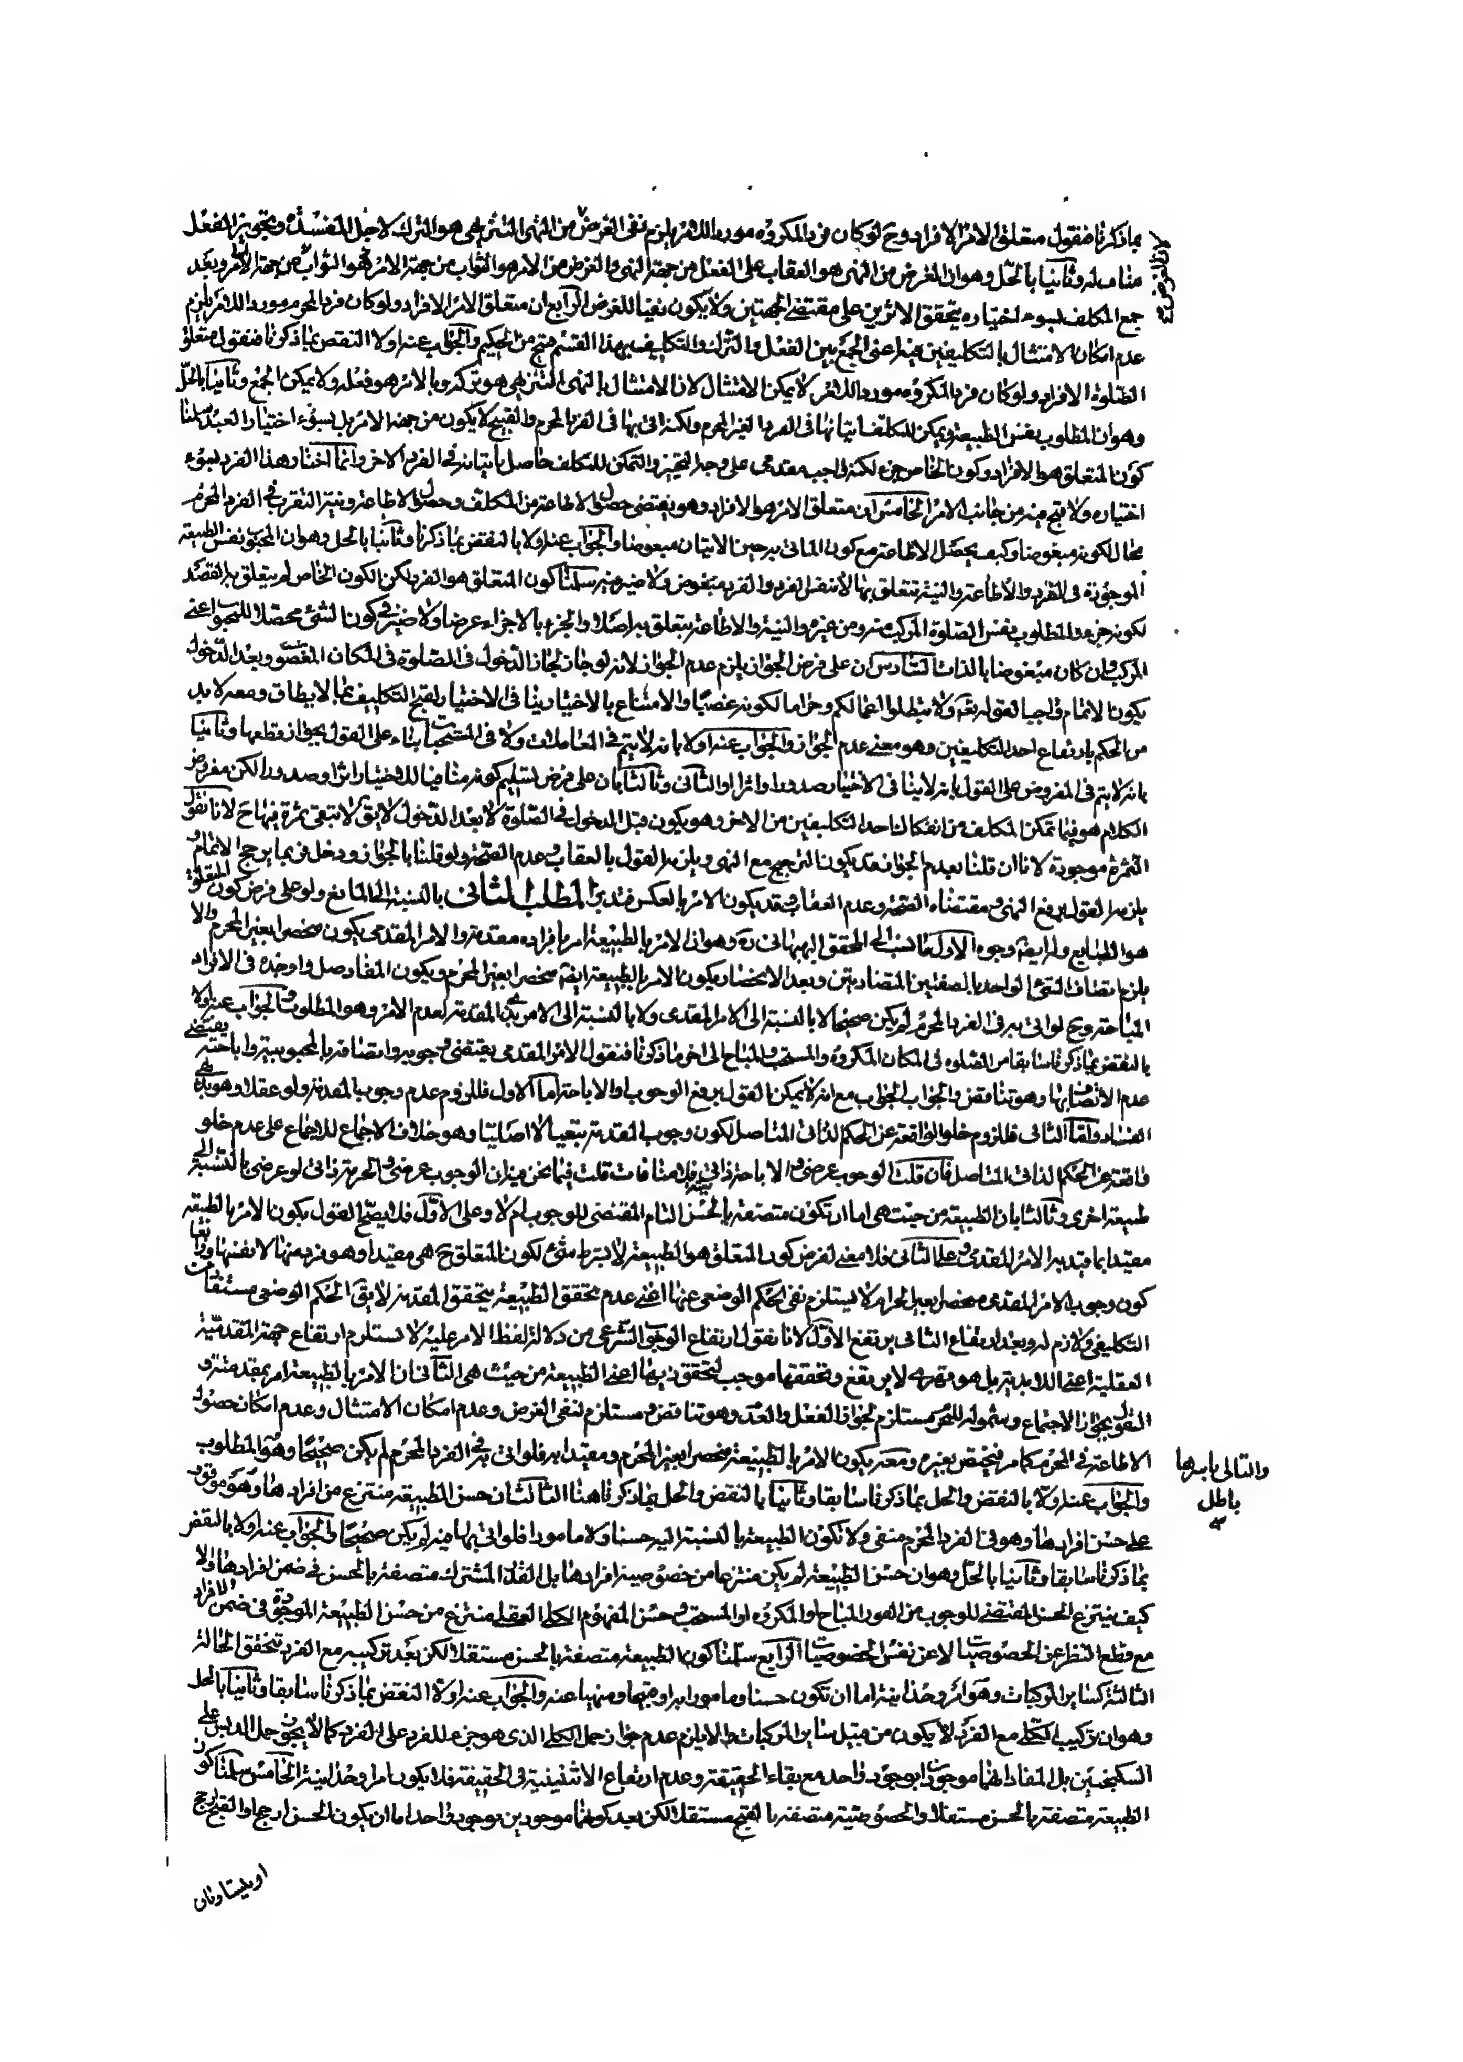 بما ذكرنا فنقول متعلق الامر الافراد وح لو كان فرد المكروه مورد الامر يلزم نفى الغرض من النهى التنزيهى هو الترك لاجل المفسدة وتجويز الفعل
مناف له وثانيا بالحل وهو ان الغرض من النهى هو العقاب على الفعل من جهة النهى والغرض من الامر هو الثواب من جهة الامر فهو الثواب من جهة الامر وبعد
جمع المكلف بسوء اختياره يتحقق الاثرين على مقتضى الجهتين ولا يكون نفيا للغرض الرابع ان متعلق الامر الافراد ولو كان فرد المحرم مورد الامر يلزم
عدم امكان الامتثال بالتكليفين فيه اعنى الجمع بين الفعل والترك والتكليف بهذا القسم قبيح من الحكيم والجواب عنه اولا النقض بما ذكرنا فنقول متعلق
الصلوة الافراد ولو كان فرد المكروه مورد الامر لا يمكن الامتثال لان الامتثال بالنهى التنزيهى هو تركه وبالامر هو فعله ولا يمكن الجمع وثانيا بالحل
وهو ان المطلوب نفس الطبيعة ويمكن للمكلف اتيانها فى الفرد الغير المحرم ولكنه اتى بها فى الفرد المحرم والقبيح لا يكون من جهة الامر بل بسوء اختيار العبد سلمنا
كون المتعلق هو الافراد وكون الخاص جزء لكنه واجب مقدمى على وجه التخيير والتمكن للمكلف حاصل باتيانه فى الفرد الاخر وانما اختار هذا الفرد بسوء
اختياره ولا قبح فيه من جانب الامر الخامس ان متعلق الامر هو الافراد وهو يقتضى حصول الاطاعة من المكلف وحصول الاطاعة ونية التقرب فى الفرد المحرم
محال لكونه مبغوضا وكيف يحصل الاطاعة مع كون الماتى به حين الاتيان مبغوضا والجواب عنه اولا بالنقض بما ذكرنا وثانيا بالحل وهو ان المحبوب نفس الطبيعة
الموجودة فى الفرد والاطاعة والنية تتعلق بها لا بنفس الفرد والفرد مبغوض ولا ضير فيه سلمنا كون المتعلق هو الفرد لكن الكون الخاص لم يتعلق به القصد
لكونه جزء والمطلوب نفس الصلوة المركب منه ومن غيره والنية والاطاعة يتعلق به اصلا والجزء بالاجزاء عرضا ولا ضير فى كون الشىء محصلا للمحبوب اعنى
المركب وان كان مبغوضا بالذات السادس ان على فرض الجواز يلزم عدم الجواز لانه لو جاز لجاز الدخول فى الصلوة فى المكان المغصوب وبعد الدخول
يكون الاتمام واجبا لقوله تعالى ولا تبطلوا اعمالكم وحراما لكونه غصبا والامتناع بالاختيار ينافى الاختيار لقبح التكليف بما لا يطاق ومعه لا بد
من الحكم بارتفاع احد التكليفين وهو معنى عدم الجواز والجواب عنه اولا بانه لا يتم فى المعاملات ولا فى المستحبات بناء على القول بجواز قطعها وثانيا
بانه لا يتم فى المفروض على القول بانه لا ينافى الاختيار صدورا واثرا او الثانى وثالثا بان على فرض تسليم كونه منافيا للاختيار اثرا وصدورا لكن مفروض
الكلام هو فيما تمكن المكلف من انفكاك احد التكليفين من الاخر وهو يكون قبل الدخول فى الصلوة لا بعد الدخول لا يق لا تبقى ثمرة فيها ح لانا نقول
الثمرة موجودة لانا ان قلنا بعدم الجواز قد يكون الترجيح مع النهى ويلزمه القول بالعقاب وعدم الصحة ولو قلنا بالجواز ودخل فربما يرجح الاتمام و
يلزمه القول برفع النهى ومقتضاه الصحة وعدم العقاب وقد يكون الامر بالعكس فتدبر المطلب الثانى بالنسبة الى المانع ولو على فرض كون المتعلق
هو الطبايع وله ايضا وجوه الاول ما نسب الى المحقق البهبهانى ره وهو ان الامر بالطبيعة امر بافراده مقدمة والامر المقدمى يكون منحصرا بغير المحرم والا
يلزم اتصاف الشىء الواحد بالصفتين المتضادتين وبعد الانحصار يكون الامر بالطبيعة ايضا منحصرا بغير المحرم ويكون المفاد صل واوجده فى الافراد
المباحة وح لو اتى به فى الفرد المحرم لم يكن صحيحا لا بالنسبة الى الامر المقدمى ولا بالنسبة الى الامر بذى المقدمة لعدم الامر وهو المطلوب والجواب عنه اولا
بالنقض بما ذكرنا سابقا من الصلوة فى المكان المكروه والمستحب والمباح الى اخر ما ذكرنا فنقول الامر المقدمى يقتضى وجوبه واتصافه بالمحبوبية واباحته يقتضى
عدم الاتصاف بها وهو تناقض والجواب الجواب مع انه لا يمكن القول برفع الوجوب او الاباحة اما الاول فللزوم عدم وجوب المقدمة ولو عقلا وهو بديهى
الفساد واما الثانى فللزوم خلو الواقعة عن الحكم الذاتى المتاصل لكون وجوب المقدمة تبعيا لا اصليا وهو خلاف الاجماع للاجماع على عدم خلو
واقعة عن الحكم الذاتى المتاصل فان قلت الوجوب عرضى والاباحة ذاتى فلا منافات قلت فيما نحن فيه ان الوجوب عرضى والحرمة ذاتى او عرضى بالنسبة الى
طبيعة اخرى وثالثا بان الطبيعة من حيث هى اما ان تكون متصفة بالحسن التام المقتضى للوجوب ام لا وعلى الاول فلا يصح القول بكون الامر بالطبيعة
مقيدا بما قيد به الامر المقدمى وعلى الثانى فلا معنى لفرض كون المتعلق هو الطبيعة لا بشرط شىء لكون المتعلق ح هى مقيدا وهو فرد منها لا نفسها ورابعا
كون وجوب الامر المقدمى منحصرا بغير الحرام لا يستلزم نفى الحكم الوضعى عنها اعنى عدم تحقق الطبيعة بتحقق المقدمة لا يق الحكم الوضعى مستفاد من
التكليفى ولازم له وبعد ارتفاع الثانى يرتفع الاول لانا نقول ارتفاع الوجوب الشرعى من دلالة لفظ الامر عليه لا يستلزم ارتفاع جهة المقدمية
العقلية اعنى اللابدية بل هو قهرى لا يرتفع وتحققها موجب لتحقق ذيها اعنى الطبيعة من حيث هى الثانى ان الامر بالطبيعة امر بمقدمته و
القول بجواز الاجتماع وشموله للمحرم مستلزم لجواز الفعل والعدم وهو تناقض ومستلزم لنفى الغرض وعدم امكان الامتثال وعدم امكان حصول
الاطاعة فى المحرم كما مر فيختص بغيره ومعه يكون الامر بالطبيعة منحصرا بغير المحرم ومقيدا به فلو اتى به فى الفرد المحرم لم يكن صحيحا وهو المطلوب
والتالى باسرها
باطل
والجواب عنه اولا بالنقض والحل بما ذكرنا سابقا وثانيا بالنقض والحل بما ذكرنا هنا الثالث ان حسن الطبيعة منتزع من افرادها وهو موقوف
على حسن افرادها وهو فى الفرد المحرم منتفى ولا تكون الطبيعة بالنسبة اليه حسنا ولا مامورا فلو اتى بها فيه لم يكن صحيحا والجواب عنه اولا بالنقض
بما ذكرنا سابقا وثانيا بالحل وهو ان حسن الطبيعة لم يكن منتزعا من خصوصية افرادها بل القدر المشترك متصفة بالحسن فى ضمن افرادها والا
كيف ينتزع الحسن المقتضى للوجوب من الفرد المباح او المكروه او المستحب وحسن المفهوم الكلى العقلى منتزع من حسن الطبيعة الموجودة فى ضمن الافراد
مع قطع النظر عن الخصوصيات لا عن نفس الخصوصيات الرابع سلمنا كون الطبيعة متصفة بالحسن مستقلا لكن بعد تركيبه مع الفرد تتحقق الحالة
الثالثة كسائر المركبات وهو امر وحدانية اما ان تكون حسنا ومامورا به او قبيحا ومنهيا عنه والجواب عنه اولا النقض بما ذكرنا سابقا وثانيا بالحل
وهو ان تركيب الكلى مع الفرد لا يكون من قبيل سائر المركبات والا يلزم عدم جواز حمل الكلى الذى هو جزء للفرد على الفرد كما لا يجوز حمل الدبس على
السكنجبين بل المفاد انهما موجودان بوجود واحد مع بقاء الحقيقة وعدم ارتفاع الاثنينية فى الحقيقة فلا يكون امرا وحدانية الخامس سلمنا كون
الطبيعة متصفة بالحسن مستقلا والخصوصية متصفة بالقبح مستقلا لكن بعد كونهما موجودين بوجود واحد اما ان يكون الحسن ارجح او القبح ارجح
او يتساويان